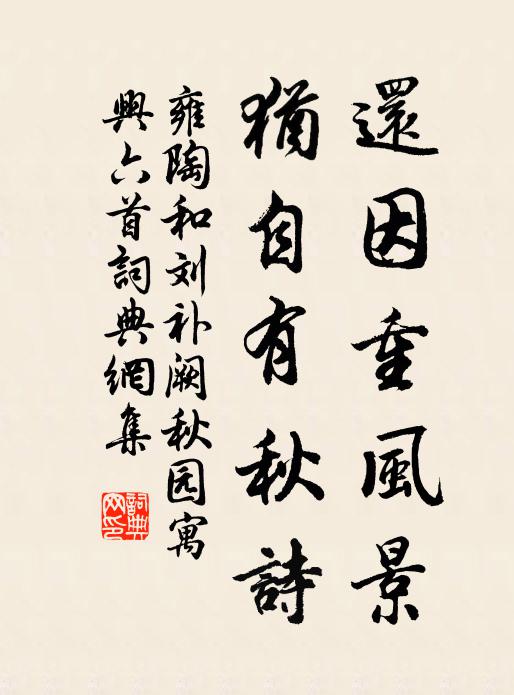 還因重風景
猶自有秋詩
雍陶和刘补阙秋园寓
興六首詞典網集
詞典網印